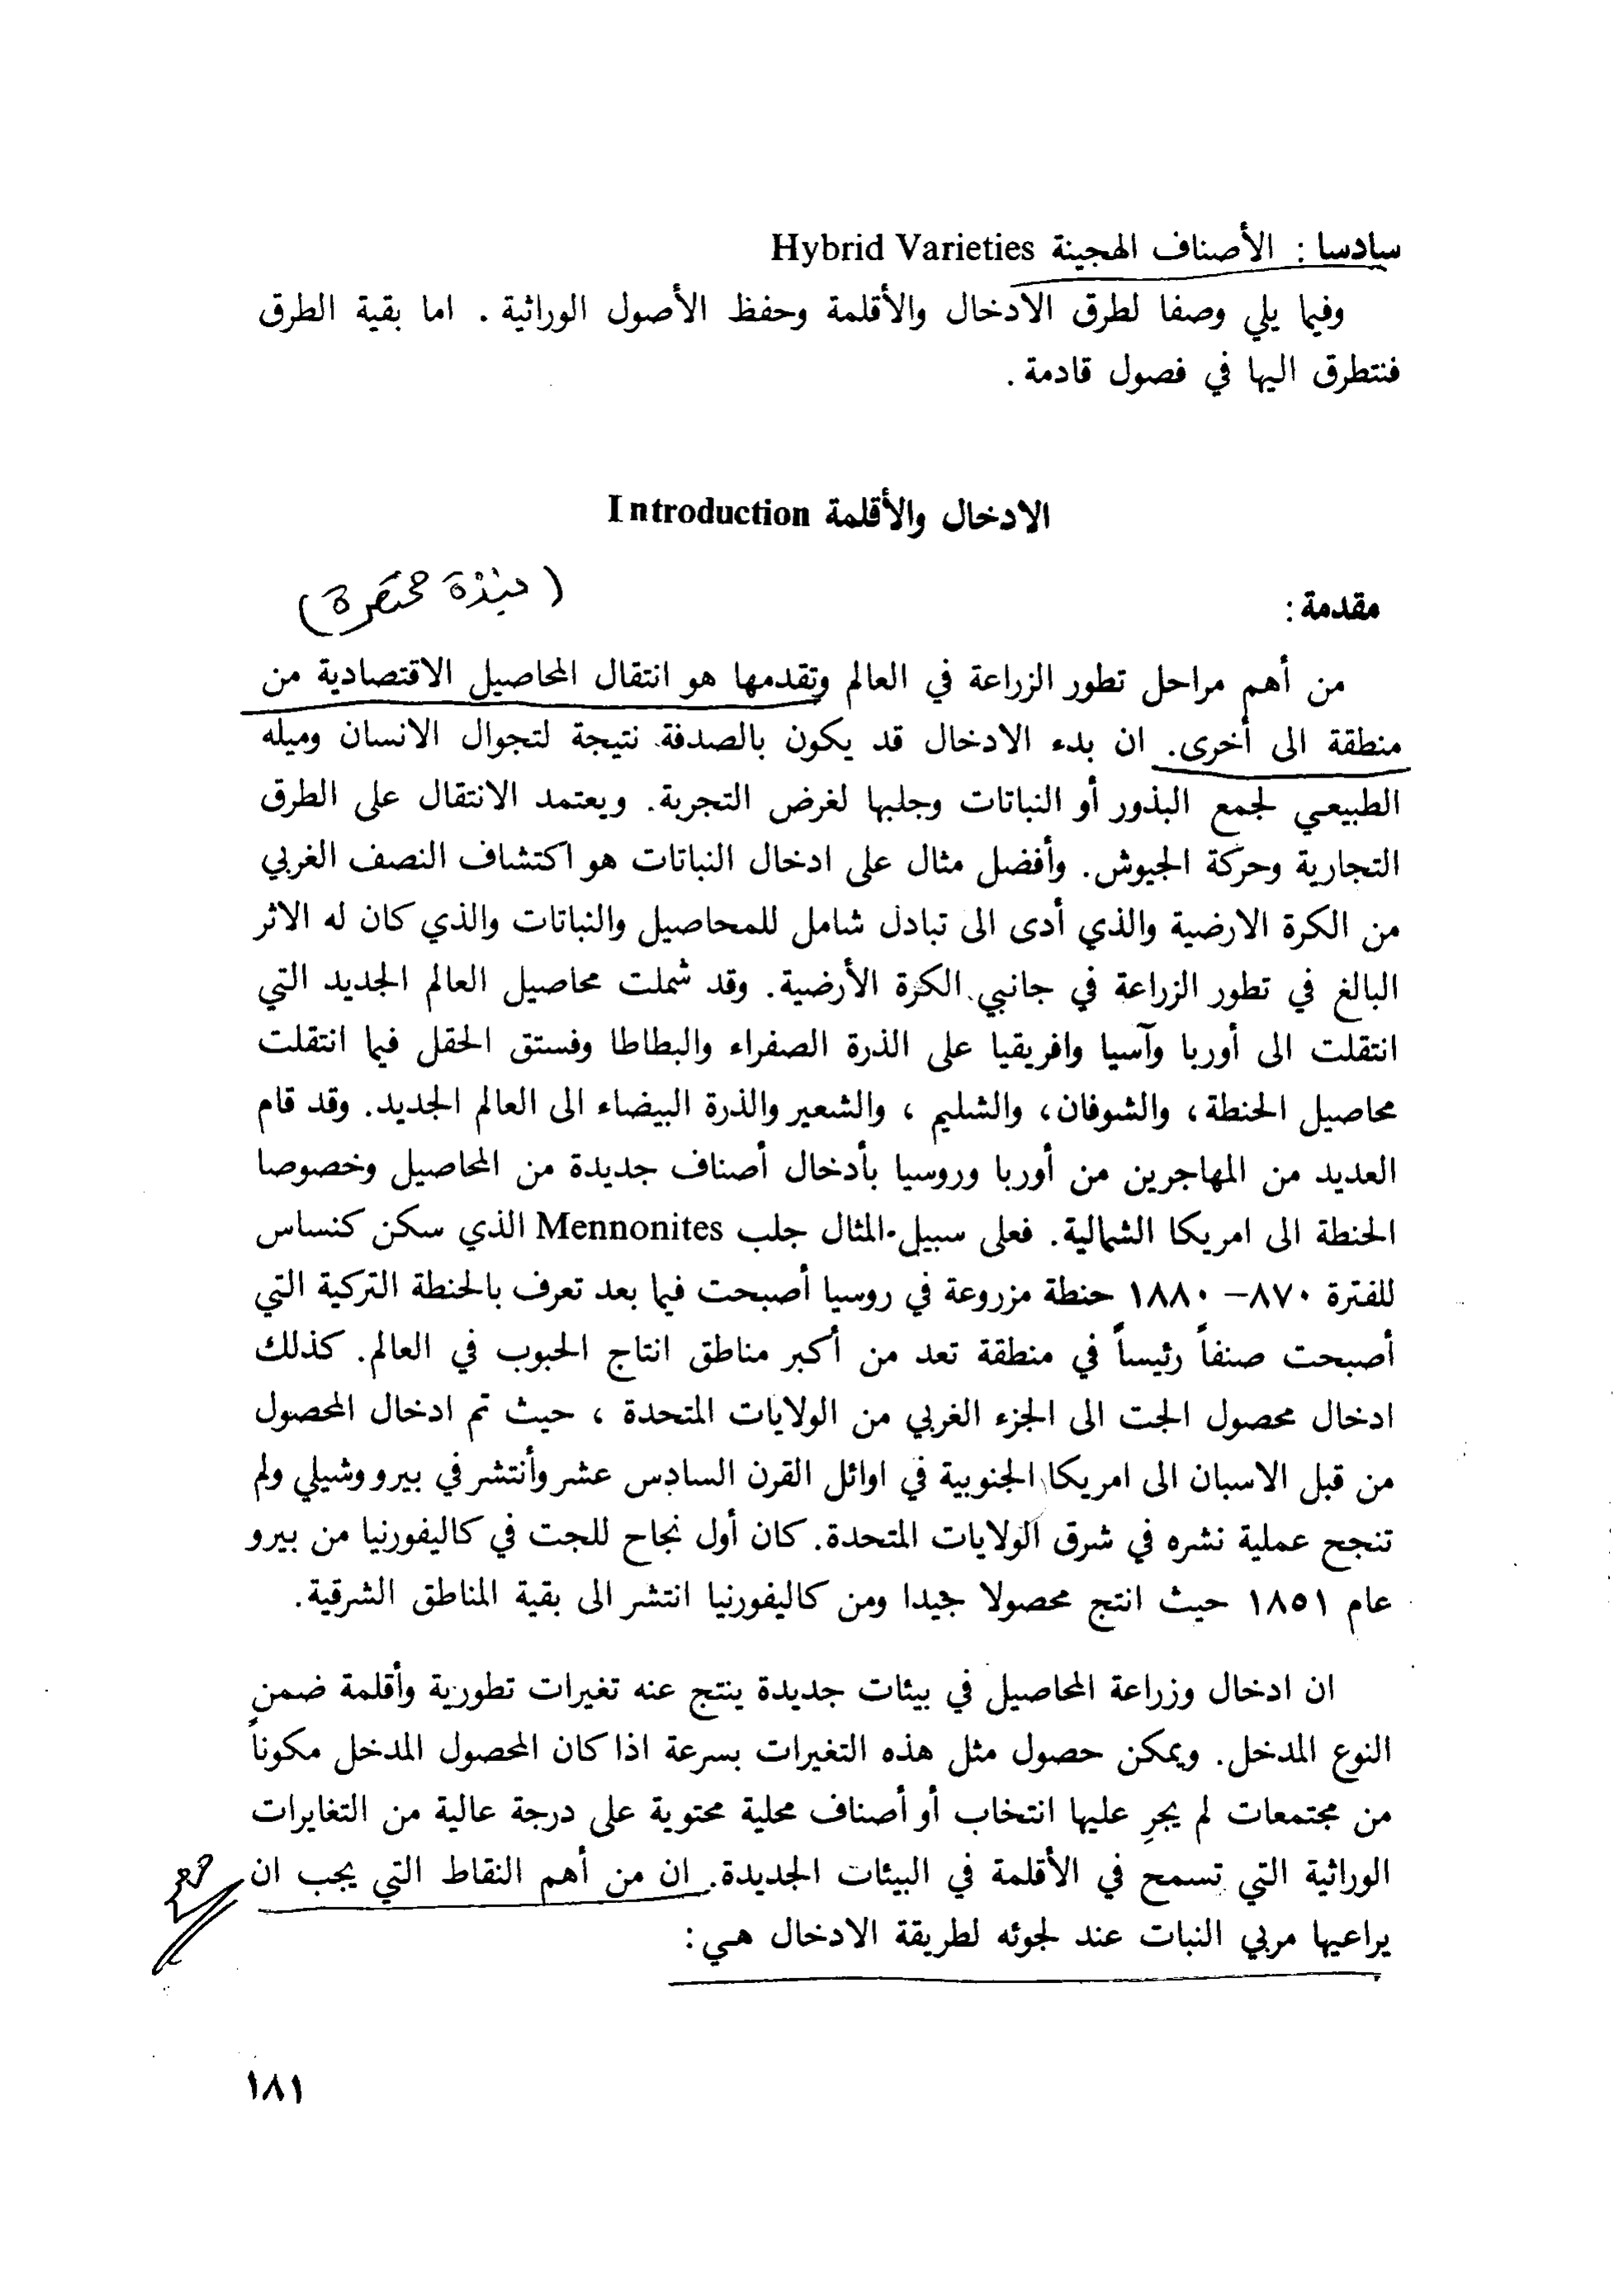 سادسا : الأصناف الهجينة Hybrid Varieties
وفيا يلي وصفا لطرق الادخال والأقلمة وحفظ الأصول الوراثية . اما بقية الطرق
فنتطرق اليها في فصول قادمة .
الادخال والأقلمة Introduction
مقدمة :
( نبذة مختصرة )
من أهم مراحل تطور الزراعة في العالم وتقدمها هو انتقال المحاصيل الاقتصادية من
منطقة الى أخرى. ان بدء الادخال قد يكون بالصدفة نتيجة لتجوال الانسان وميله
الطبيعي لجمع البذور أو النباتات وجلبها لغرض التجربة. ويعتمد الانتقال على الطرق
التجارية وحركة الجيوش. وأفضل مثال على ادخال النباتات هو اكتشاف النصف الغربي
من الكرة الارضية والذي أدى الى تبادل شامل للمحاصيل والنباتات والذي كان له الاثر
البالغ في تطور الزراعة في جانبي الكرة الأرضية. وقد شملت محاصيل العالم الجديد التي
انتقلت الى أوربا وآسيا وافريقيا على الذرة الصفراء والبطاطا وفستق الحقل فيا انتقلت
محاصيل الحنطة، والشوفان، والشليم ، والشعير والذرة البيضاء الى العالم الجديد. وقد قام
العديد من المهاجرين من أوربا وروسيا بأدخال أصناف جديدة من المحاصيل وخصوصا
الحنطة الى امريكا الشمالية. فعلى سبيل المثال جلب Mennonites الذي سكن كنساس
للفترة ٨٧٠– ١٨٨٠ حنطة مزروعة في روسيا أصبحت فيا بعد تعرف بالحنطة التركية التي
أصبحت صنفاً رئيساً في منطقة تعد من أكبر مناطق انتاج الحبوب في العالم. كذلك
ادخال محصول الجت الى الجزء الغربي من الولايات المتحدة ، حيث تم ادخال المحصول
من قبل الاسبان الى امريكا الجنوبية في اوائل القرن السادس عشر وأنتشر في بيرو وشيلي ولم
تنجح عملية نشره في شرق الولايات المتحدة. كان أول نجاح للجت في كاليفورنيا من بيرو
عام ١٨٥١ حيث انتج محصولا جيدا ومن كاليفورنيا انتشر الى بقية المناطق الشرقية.
ان ادخال وزراعة المحاصيل في بيئات جديدة ينتج عنه تغيرات تطورية وأقلمة ضمن
النوع المدخل. ويمكن حصول مثل هذه التغيرات بسرعة اذا كان المحصول المدخل مكوناً
من مجتمعات لم يجرِ عليها انتخاب أو أصناف محلية محتوية على درجة عالية من التغايرات
الوراثية التي تسمح في الأقلمة في البيئات الجديدة. ان من أهم النقاط التي يجب ان
يراعيها مربي النبات عند لجوئه لطريقة الادخال هي :
١٨١